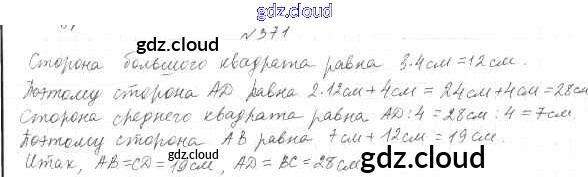 gdz.cloud
№371
gdz.cloud
Сторона большого квадрата равна 3·4см=12см.
gdz.cloud
Поэтому сторона AD равна 2·12см+4см = 24см+4см = 28см
Сторона среднего квадрата равна AD:4 = 28см:4 = 7см.
gdz.cloud gdz.cloud
Поэтому сторона AB равна 7см+12см = 19см.
Итак, AB=CD=19см, AD=BC=28см
gdz.cloud gdz.cloud